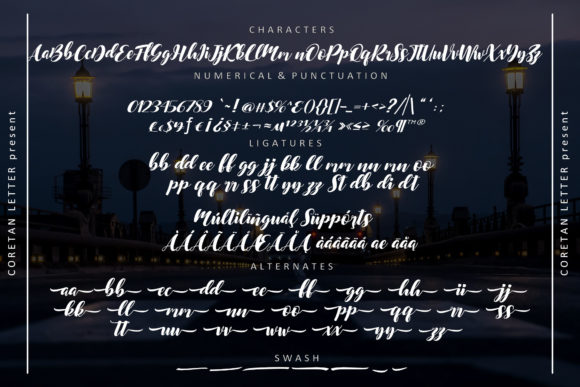 CORETAN LETTER present
CHARACTERS
AaBbCcDdEeFfGgHhIiJjKkLlMm nOoPpQqRrSsTtUuVvWwXxYyZz
NUMERICAL & PUNCTUATION
0123456789
LIGATURES
bb dd ee ff gg jj bb ll mm nn oo
pp qq rr ss tt yy zz St db di dt
Multilingual Supports
ALTERNATES
aa bb cc dd ee ff gg hh ii jj
bb ll mm nn oo pp qq rr ss
tt uu vv ww xx yy zz
SWASH
CORETAN LETTER present